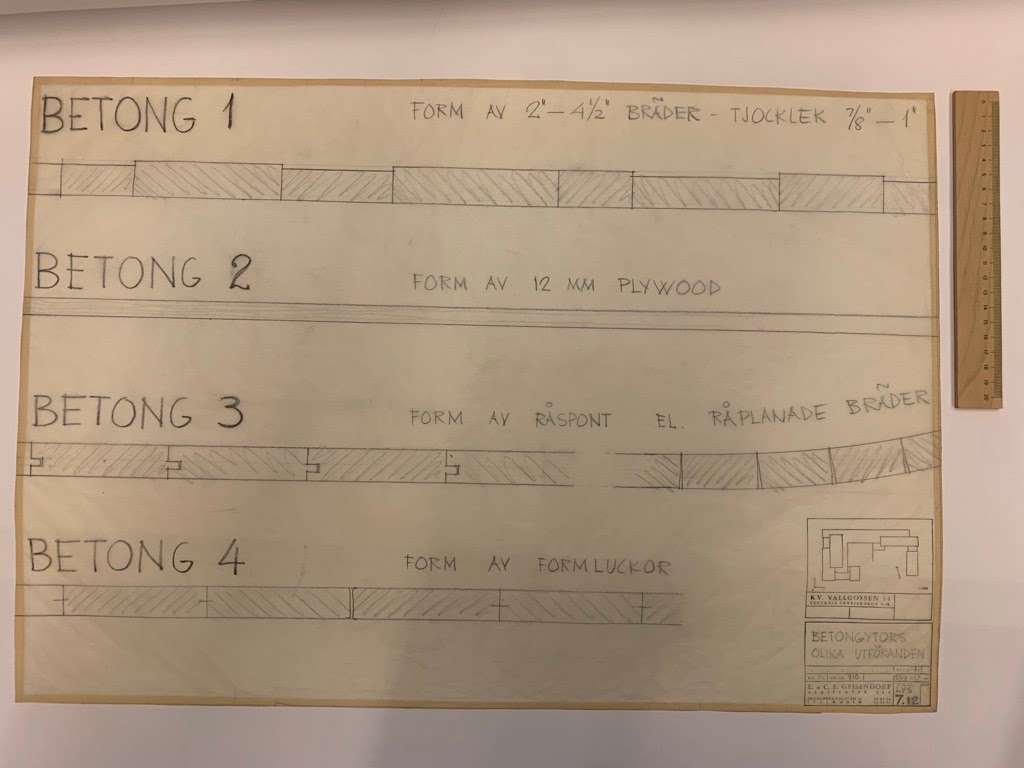 BETONG 1
FORM AV 2" – 4½" BRÄDER – TJOCKLEK ⅞" – 1"
BETONG 2
FORM AV 12 MM PLYWOOD
BETONG 3
FORM AV RÅSPONT EL. RÅPLANADE BRÄDER
BETONG 4
FORM AV FORMLUCKOR
KV. VALLGOSSEN 14
BETONGYTORS
OLIKA UTFÖRANDEN
7.12